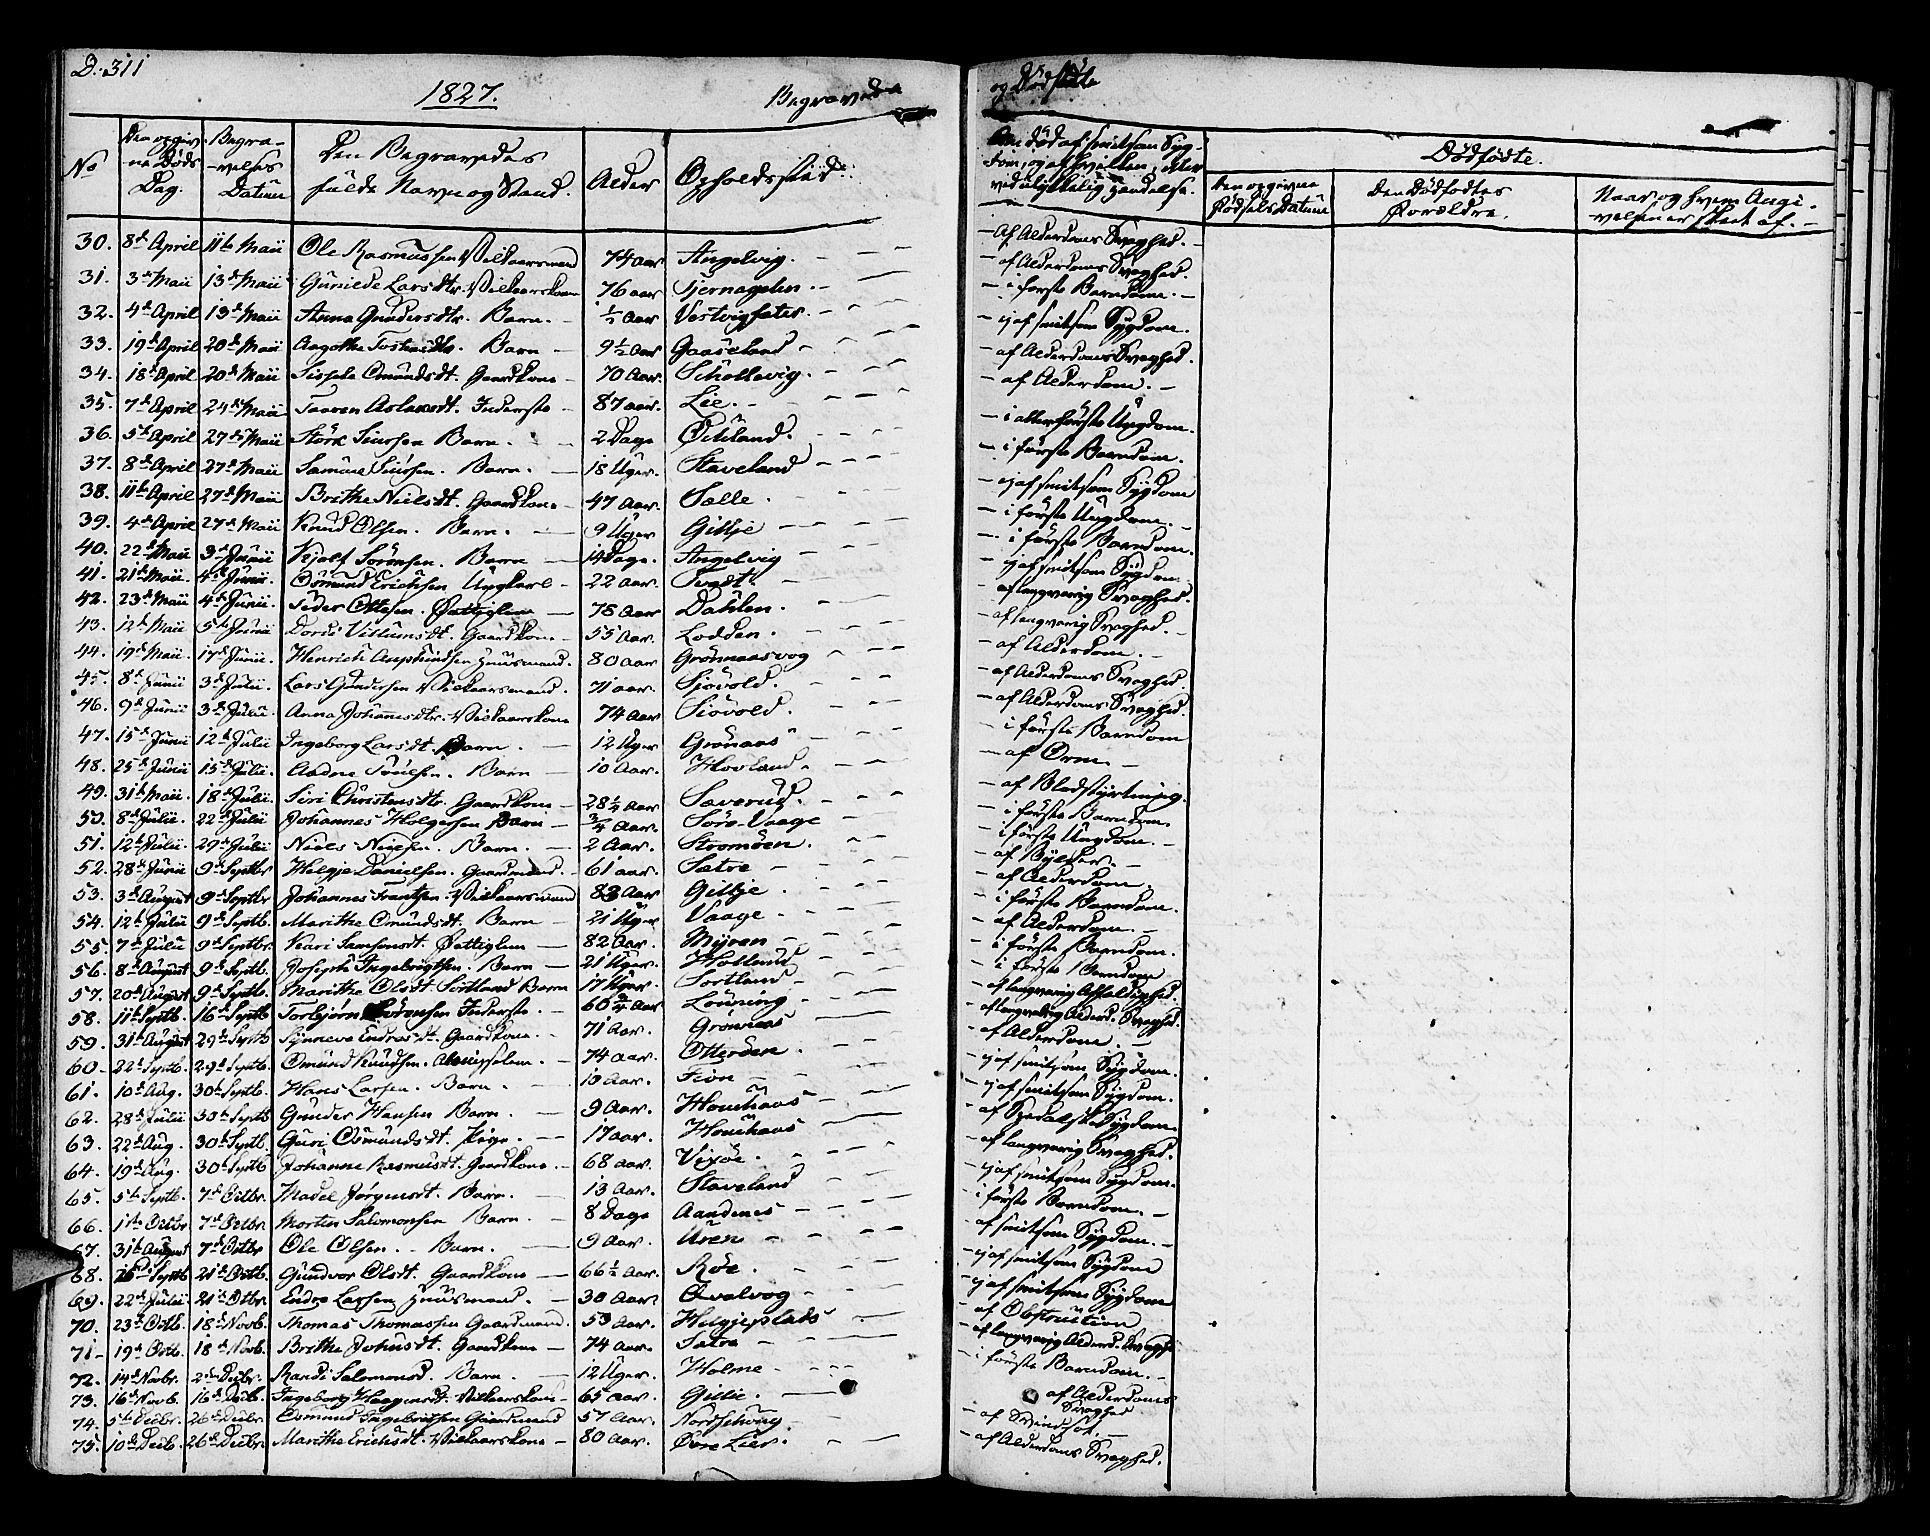 D: 311
1827.
Begravede
og Dødfødte
No
Den opgiv-
ne Døds
Dag.
Begra-
-velses
Datum
Den Begravedes
fulde Navn og Stand.
Alder
Opholdssted.
Om død af smitsom Syg-
dom, og af hvilken, eller
ved ulykkelig Hændelse.
Dødfødte.
Den opgivne
Fødsels Datum
Den Dødfødtes
Forældre.
Naar og hvem Angi-
velsen er skeet af.
30. 8de April 11te Maii Ole Rasmussen Vilkaarsmand 74 aar Angelvig. - af Alderdoms Svaghed.
31. 3die Maii 13de Maii Gunilde Larsdtr. Vilkaarskone 76 aar Tjernagelen. - af Alderdoms Svaghed.
32. 4de April 13de Maii Anna Gundersdtr. Barn. ½ Aar - i første Barndom.
33. 19de April 20de Maii Aagothe Barn 9½ Aar Gaaseland - ej af smitsom Sygdom.
34. 18de April 20de Maii Sissele Omundsdt. Gaardkone 70 Aar. Skollevig. - af Alderdoms Svaghed.
35. 7de April 24de Maii Taaren Aslaksdt. Inderste 87 aar. Lie. - af Alderdom.
36. 5te April 27de Maii Størk Siursen Barn. 2 Dage Økland. - i allerførste Ungdom.
37. 8de April 27de Maii Samuel Siursen. Barn. 18 Uger. Staveland - i første Barndom.
38. 11te April 27de Maii Brithe Nielsdt. Gaardkone 47 Aar. Sælle. - ej af smitsom Sygdom
39. 4de April 27de Maii Knud Olsen. Barn. 9 Uger Gilkje - i første Ungdom.
40. 22de Maii 3die Junii Kjolf Sørensen. Barn 14 Dage. Angelvig - i første Barndom.
41. 21de Maii 4de Junii. Osmund Erichsen Ungkarl 22 aar. Tvedt. - ej af smitsom Sygdom
42. 23de Maii 4de Junii. Peder Ottesen. Fattiglem 78 Aar Dahlen. - af langvarig Svaghed.
43. 12te Maii 5te Junii Dorde Villumsdt. Gaardkone 55 Aar. Lodden. - af langvarig Svaghed.
44. 19de Maii 17de Junii. Henrich Huusmand. 80 aar Grønnaasvog - af Alderdom.
45. 8de Junii 3die Julii. Lars Gundersen Vilkaarsmand. 71 aar. Siøvold. - af Alderdoms Svaghed
46. 9de Junii 3die Julii Anna Johannesdtr. Vilkaarskone 74 Aar Siøvold. - af Alderdoms Svaghed.
47. 15de Junii 12te Julii Ingeborg Larsdt. Barn. 12 Uger Grønaas - i første Barndom
48. 25de Junii 15de Julii. Aadne Barn 10 Aar. Hovland. - af Orm.
49. 31te Maii. 18de Julii. Siri Christensdtr. Gaardkone 28¼ Aar Saverud. - af Blodstyrtning.
50. 8de Julii. 22de Julii Johannes Holgersen Barn ¾ Aar. Søre-Vaage - i første Barndom.
51. 12te Julii 29de Julii Niels Nielsen. Barn. 2 Aar. Stromøen. - i første Ungdom.
52. 28de Junii 9de Septbr Helgje Danielsen. Gaardmand. 61 aar. Sætre - af Bylder.
53. 3die August 9de Septbr Johannes Frantsen. Vilkaarsmand 83 Aar Gilkje. - af Alderdom.
54. 12te Julii 9de Septb. Marithe Omundsdt. Barn 21 Uger Vaage. - i første Barndom.
55 7de Julii 9de Septbr. Kari Samsonsdt. Fattiglem 82 Aar. Myren - af Alderdom.
56. 8de August 9de Septb. Joseph Ingebrigtsen. Barn 21 Uger. Holland - i første Barndom.
57. 20de August 9de Septb. Marithe Olsdt. Sortland Barn 17 Uger. Sortland - i første Barndom
58. 11te Septb. 16de Septb Torbjørn Sørensen Inderste. 60¾ Aar Løuning - af langvarig Affældighed.
59. 31te August 29de Septb Synneva Endresdt. Gaardkone. 71 Aar. Grønnaas - af langvarig Alderd. Svaghed.
60 22de Septb. 29de Septb. Omund Knudsen. Almisselem. 74 aar. Otterøen. - af Alderdom.
61. 10de Aug. 30te Septb. Hans Larsen. Barn. 10 Aar. Fiøn - ej af smitsom Sygdom.
62. 28de Julii 30te Septb Gunder Hansen Barn. 9 Aar. - ej af smitsom Sygdom.
63. 22de Aug. 30te Septb. Guri Osmundsdt. Pige. 17 aar. - af Spedalsk Sygdom.
64. 19de Aug. 30te Septb Johanne Rasmusdt. Gaardkone. 68 aar. Vixøe. - af langvarig Svaghed.
65. 5te Septb. 7de Octbr. Madel Jørgensdt. Barn. 13 Aar. Staveland - ej af smitsom Sygdom.
66. 1ste Octbr 7de Octbr. Morten Salomonsen Barn. 8 Dage Aandenes - i første Barndom.
67. 31te August 7de Octbr Ole Olsen. Barn. 9 Aar. Uren - af smitsom Sygdom.
68. Septb 21de Octb. Gundvor Olsdt. Gaardkone 66½ Aar. Røe. - ej af smitsom Sygdom
69. 22de Julii 21de Octbr. Endre Larsen Huusmand. 30 Aar Qvalvog - ej af smitsom Sygdom
70. 23de Octb. 18de Novb. Thomas Thomassen Gaardmand. 53 Aar. Helgjeplads - af Obstruction
71 19de Octb. 18de Novb. Brithe Johnsdt. Gaardkone 74 Aar. Sætre - af langvarig Alderd. Svagh.
72. 14de Novbr. 2den Decbr. Randi Salomonsd. Barn. 12 Uger Holme - i første Barndom.
73. 16de Novb. 16de Decb. Ingeborg Haagensdt. Vilkaarskone 65 aar. Gillie. af Alderdoms Svaghed
74. 5te Decbr. 26de Decbr. Osmund Ingebretsen Gaardmand 57 Aar. - af Svindsot.
75. 10de Decb. 26de Decbr. Marithe Erichsdt. Vilkaarskone 80 aar. Øvre Lier. - af Alderdoms Svaghed.